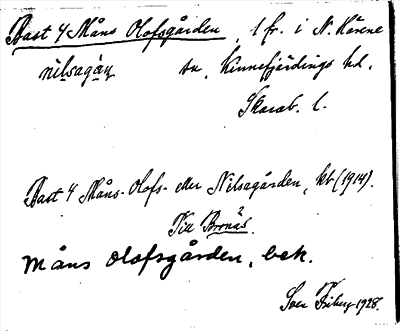 Bast 4 Måns Olofsgården, 1 fr. i N. Kärene
nilsagáṇ sn, Kinnefjärdings hd,
Skarab. l.
Bast 4 Måns-Olofs- eller Nilsagården, kb (1914).
Till Brønäs.
Måns Olofsgården, bek.
Sven Friberg 1928.